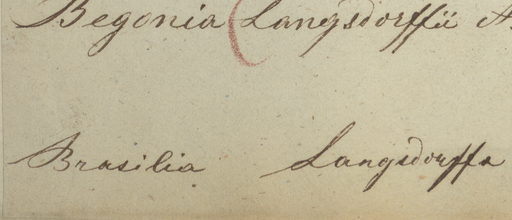 Begonia Langsdorffii A
Brasilia Langsdorff